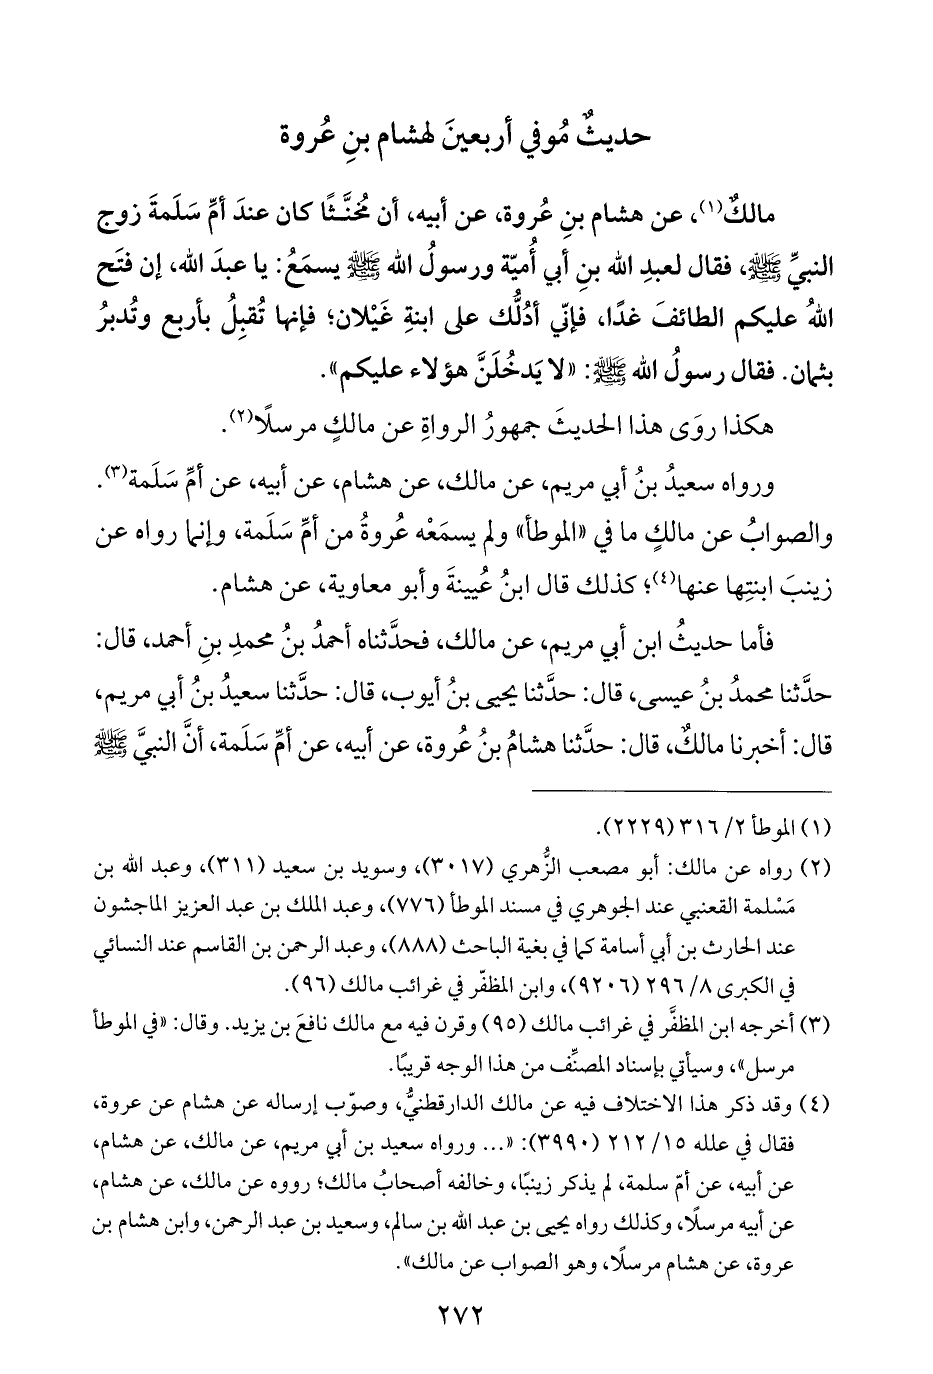 حديثٌ مُوفي أربعينَ لهشام بنِ عُروة
مالكٌ(١)، عن هشام بنِ عُروة، عن أبيه، أن مُخنَّثًا كان عندَ أمِّ سَلَمةَ زوج
النبيِّ ﷺ، فقال لعبدِ الله بنِ أبي أُميّة ورسولُ الله ﷺ يسمَعُ: يا عبدَ الله، إن فتَح
اللهُ عليكم الطائفَ غدًا، فإنّي أدُلُّك على ابنةِ غَيْلان؛ فإنها تُقبِلُ بأربع وتُدبرُ
بثمان. فقال رسولُ الله ﷺ: «لا يَدخُلَنَّ هؤلاء عليكم».
هكذا روَى هذا الحديثَ جمهورُ الرواةِ عن مالكٍ مرسلًا(٢).
ورواه سعيدُ بنُ أبي مريم، عن مالك، عن هشام، عن أبيه، عن أمِّ سَلَمة(٣).
والصوابُ عن مالكٍ ما في «الموطأ» ولم يسمَعْه عُروةُ من أمِّ سَلَمة، وإنما رواه عن
زينبَ ابنتِها عنها(٤)؛ كذلك قال ابنُ عُيينةَ وأبو معاوية، عن هشام.
فأما حديثُ ابن أبي مريم، عن مالك، فحدَّثناه أحمدُ بنُ محمدِ بنِ أحمد، قال:
حدَّثنا محمدُ بنُ عيسى، قال: حدَّثنا يحيى بنُ أيوب، قال: حدَّثنا سعيدُ بنُ أبي مريم،
قال: أخبرنا مالكٌ، قال: حدَّثنا هشامُ بنُ عُروة، عن أبيه، عن أمِّ سَلَمة، أنَّ النبيَّ ﷺ
(١) الموطأ ٢/ ٣١٦ (٢٢٢٩).
(٢) رواه عن مالك: أبو مصعب الزُّهري (٣٠١٧)، وسويد بن سعيد (٣١١)، وعبد الله بن
مَسْلمة القعنبي عند الجوهري في مسند الموطأ (٧٧٦)، وعبد الملك بن عبد العزيز الماجشون
عند الحارث بن أبي أسامة كما في بغية الباحث (٨٨٨)، وعبد الرحمن بن القاسم عند النسائي
في الكبرى ٨/ ٢٩٦ (٩٢٠٦)، وابن المظفّر في غرائب مالك (٩٦).
(٣) أخرجه ابن المظفَّر في غرائب مالك (٩٥) وقرن فيه مع مالك نافعَ بن يزيد. وقال: «في الموطأ
مرسل»، وسيأتي بإسناد المصنِّف من هذا الوجه قريبًا.
(٤) وقد ذكر هذا الاختلاف فيه عن مالك الدارقطنيُّ، وصوّب إرساله عن هشام عن عروة،
فقال في علله ١٥/ ٢١٢ (٣٩٩٠): «... ورواه سعيد بن أبي مريم، عن مالك، عن هشام،
عن أبيه، عن أمّ سلمة، لم يذكر زينبًا، وخالفه أصحابُ مالك؛ رووه عن مالك، عن هشام،
عن أبيه مرسلًا، وكذلك رواه يحيى بن عبد الله بن سالم، وسعيد بن عبد الرحمن، وابن هشام بن
عروة، عن هشام مرسلًا، وهو الصواب عن مالك».
٢٧٢